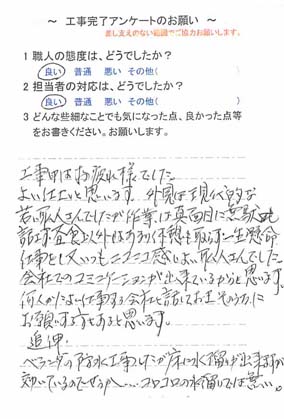 ～ 工事完了アンケートのお願い ～
差し支えのない範囲でご協力お願いします。
1 職人の態度は、どうでしたか？
良い 普通 悪い その他( )
2 担当者の対応は、どうでしたか？
良い 普通 悪い その他( )
3 どんな些細なことでも気になった点、良かった点等
をお書きください。お願いします。
工事中はお疲れ様でした
よい仕上と思います。外見は現代的な
若い職人さんでしたが作業は真面目に無駄
話もせず昼食以外はあまり休憩も取らず一生懸命
仕事をしいつもニコニコ感じよい職人さんでした
会社でのコミニケーションが出来ているからと思います。
何人かによい仕事する会社と話しておきましたそちらに
お願いするかもあると思います。
追伸
ベランダの防水工事でしたが床に水溜りが出来ますが
効いているのでせうか…. コロコロの水溜りでは無い。